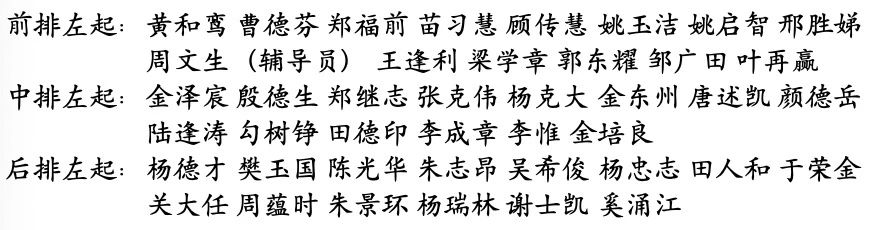 前排左起：黄和鸾 曹德芬 郑福前 苗习慧 顾传慧 姚玉洁 姚启智 邢胜娣
周文生（辅导员） 王逢利 梁学章 郭东耀 邹广田 叶再赢
中排左起：金泽宸 殷德生 郑继志 张克伟 杨克大 金东州 唐述凯 颜德岳
陆逢涛 勾树铮 田德印 李成章 李惟 金培良
后排左起：杨德才 樊玉国 陈光华 朱志昂 吴希俊 杨忠志 田人和 于荣金
关大任 周蕴时 朱景环 杨瑞林 谢士凯 奚涌江